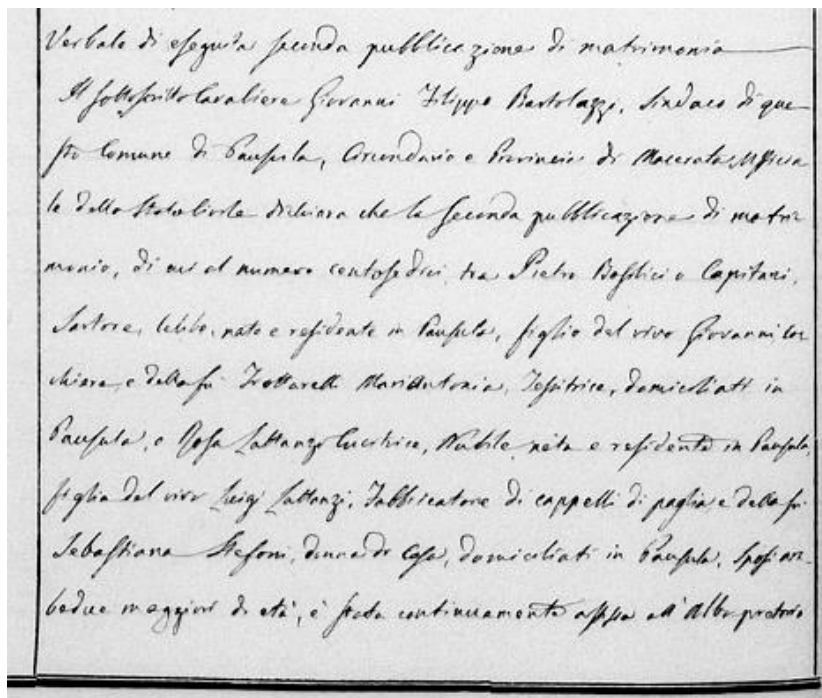 Verbale di eseguita seconda pubblicazione di matrimonio
Il sottoscritto Cavaliere Giovanni Filippo Bartolazzi, Sindaco di que
sto Comune di Pausula, Circondario e Provincia di Macerata Officia
le dello Stato Civile dichiara che la seconda pubblicazione di matri
monio, di cui al numero centosedici tra Pietro Basilici o Capitani,
Sartore, celibe, nato e residente in Pausula, figlio del vivo Giovanni coc
chiere e della fu Trottarelli Mariantonia, Tessitrice, domiciliati in
Pausula, e Rosa Lattanzi Cucitrice, Nubile nata e residente in Pausula,
figlia del vivo Luigi Lattanzi, Fabbricatore di cappelli di paglia e della fu
Sebastiana Stefoni, donna di Casa, domiciliati in Pausula, Sposi am
bedue maggiori di età, è stata continuamente affissa all'Albo pretorio